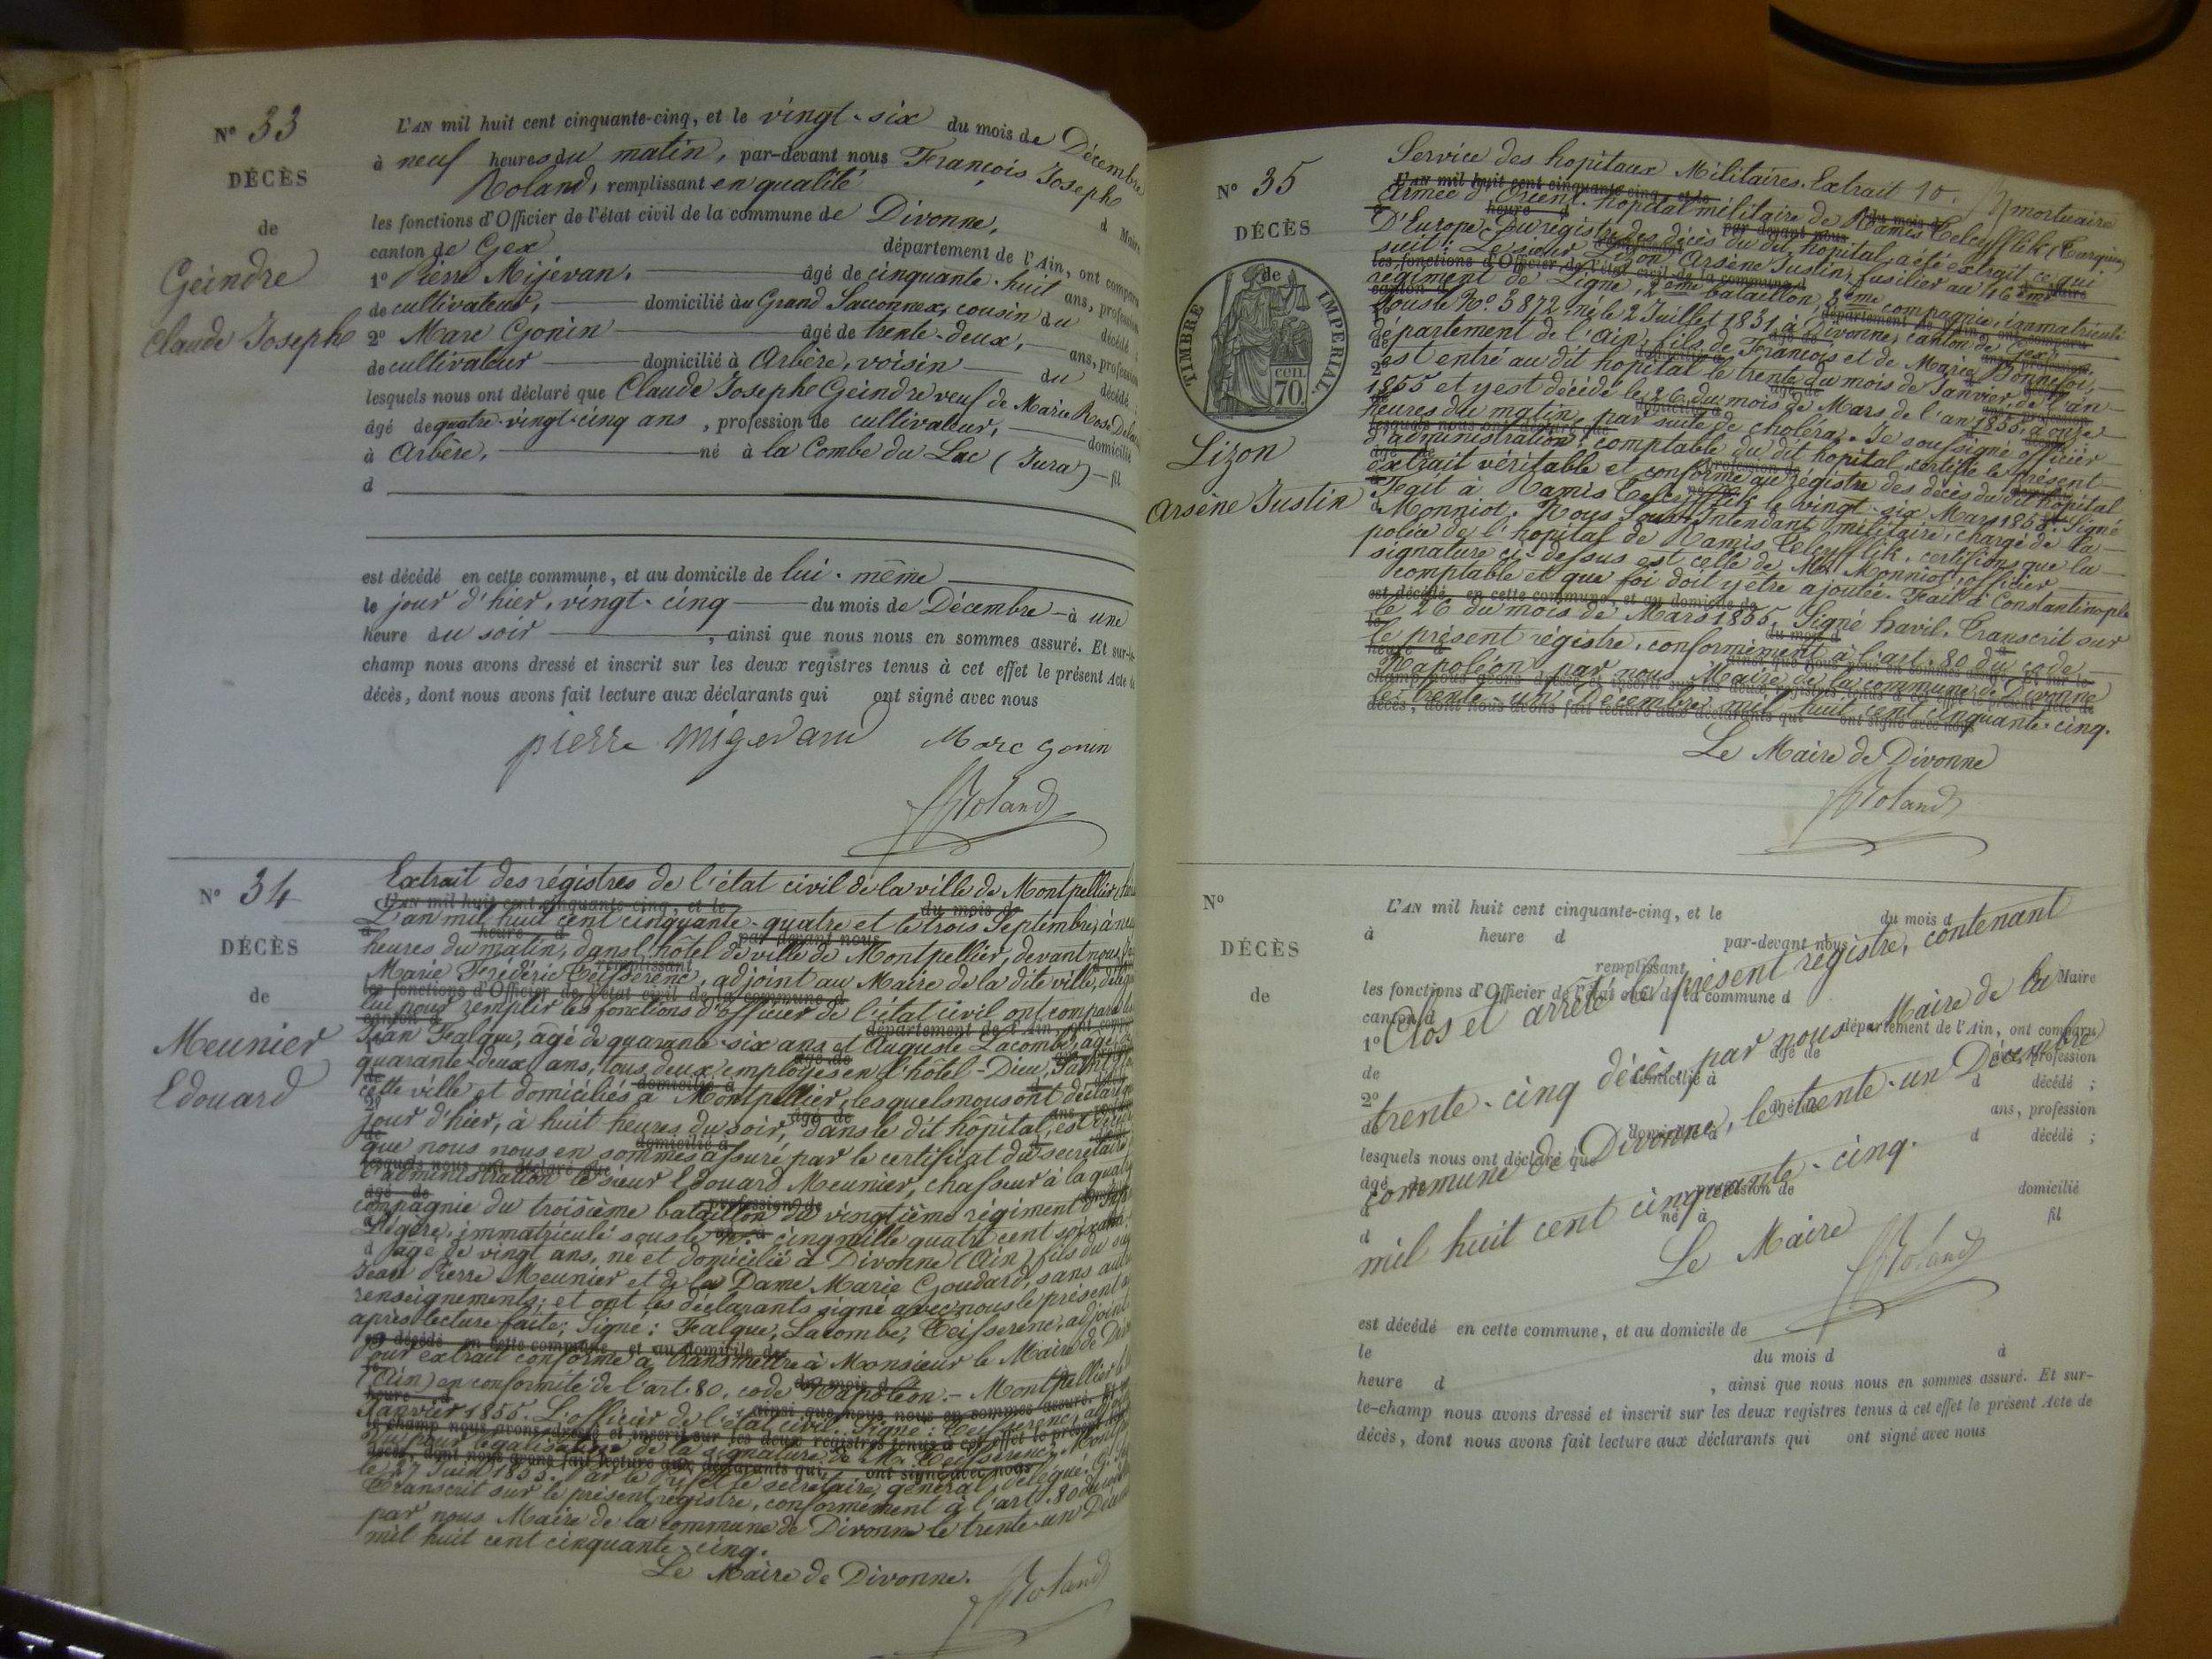 N° 33
DÉCÈS
de
Geindre
Claude Josephe
L'AN mil huit cent cinquante-cinq, et le vingt-six du mois de Décembre
à neuf heures du matin, par-devant nous François Josephe
Roland, remplissant en qualité d Maire
les fonctions d'Officier de l'état civil de la commune de Divonne,
canton de Gex département de l'Ain, ont comparu
1° Pierre Mijevan, âgé de cinquante-huit ans, profession
de cultivateur, domicilié au Grand Saconnex, cousin du décédé ;
2° Marc Gonin âgé de trente-deux, ans, profession
de cultivateur domicilié à Arbère, voisin du décédé ;
lesquels nous ont déclaré que Claude Josephe Geindre veuf de Marie Rose
âgé de quatre-vingt-cinq ans, profession de cultivateur, domicilié
à Arbère, né à la Combe du Lac (Jura) fil
d
est décédé en cette commune, et au domicile de lui-même
le jour d'hier, vingt-cinq du mois de Décembre à une
heure du soir, ainsi que nous nous en sommes assuré. Et sur-le-
champ nous avons dressé et inscrit sur les deux registres tenus à cet effet le présent Acte de
décès, dont nous avons fait lecture aux déclarants qui ont signé avec nous
pierre migevand Marc Gonin
Roland
N° 34
DÉCÈS
de
Meunier
Edouard
Extrait des régistres de l'état civil de la ville de Montpellier
L'an mil huit cent cinquante-quatre et le trois Septembre, à
heures du matin, dans l'hôtel de ville de Montpellier, devant nous
Marie Frédéric Teisserenc, adjoint au Maire de la dite ville,
lui pour remplir les fonctions d'officier de l'état civil ont comparu
Jean Falque, âgé de quarante-six ans et Auguste Lacombe, âgé
quarante-deux ans, tous deux employés en l'hôtel-Dieu
cette ville et domiciliés à Montpellier, lesquels nous ont déclaré
jour d'hier, à huit heures du soir, dans le dit hôpital, est
que nous nous en sommes assuré par le certificat du secrétaire
l'administration le sieur Edouard Meunier, chasseur à la
compagnie du troisième bataillon du vingtième régiment
Légère, immatriculé sous le n° cinq mille quatre cent
âgé de vingt ans, né et domicilié à Divonne (Ain) fils du
Jean Pierre Meunier et de la Dame Marie Goudard, sans
renseignements; et ont les déclarants signé avec nous le présent
après lecture faite; Signé: Falque, Lacombe, Teisserenc, adjoint
Pour extrait conforme à transmettre à Monsieur le Maire de
(Ain) en conformité de l'art. 80, code Napoléon. - Montpellier
Janvier 1855. L'officier de l'état civil. Signé: Teisserenc
légalisation de la signature de Mr. Teisserenc,
le 27 Juin 1855. Par le Préfet le secrétaire général, délégué.
Transcrit sur le présent registre, conformément à l'art. 80 du
par nous Maire de la commune de Divonne le trente-un
mil huit cent cinquante-cinq.
Le Maire de Divonne.
Roland
N° 35
DÉCÈS
de
TIMBRE IMPERIAL
70 cen.
Lizon
Arsène Justin
Service des hopitaux Militaires. Extrait mortuaire
Armée d'Orient. hopital militaire de Ramis Tchifflik (Turquie
D'Europe) Du registre des décès du dit hopital, a été extrait ce qui
suit: Le sieur Lizon Arsène Justin, fusilier au 46ème
régiment de Ligne, 2ème bataillon, 8ème compagnie, immatriculé
sous le N° 5872, né le 2 Juillet 1831, à Divonne, canton de Gex,
département de l'Ain, fils de François et de Marie Bonnefoi,
est entré au dit hopital le trente du mois de Janvier, de l'an
1855 et y est décédé le 26 du mois de Mars de l'an 1855, à onze
heures du matin par suite de choléra. Je soussigné officier
d'administration, comptable du dit hopital, certifie le présent
extrait véritable et conforme au régistre des décès du dit hôpital
Fait à Ramis Tchifflik le vingt-six Mars 1855. Signé
Monniot. Nous Sous-Intendant militaire, chargé de la
police de l'hopital de Ramis Tchifflik, certifions que la
signature ci-dessus est celle de Mr. Monniot, officier
comptable et que foi doit y etre ajoutée. Fait à Constantinople
le 26 du mois de Mars 1855. Signé havil. Transcrit sur
le présent régistre, conformément à l'art. 80 du code
Napoléon par nous Maire de la commune de Divonne
le trente-un Décembre mil huit cent cinquante-cinq.
Le Maire de Divonne
Roland
N°
DÉCÈS
de
L'AN mil huit cent cinquante-cinq, et le du mois d
à heure d par-devant nous
remplissant
les fonctions d'Officier de l'état civil de la commune d Maire
canton d département de l'Ain, ont comparu
1° âgé de ans, profession
de domicilié à d décédé ;
2° âgé de ans, profession
de domicilié à d décédé ;
lesquels nous ont déclaré que
âgé de profession de domicilié
à né à fil
d
Clos et arrêté le présent registre, contenant
trente-cinq décès par nous Maire de la
commune de Divonne, le trente-un Décembre
mil huit cent cinquante-cinq.
Le Maire
Roland
est décédé en cette commune, et au domicile de
le du mois d à
heure d , ainsi que nous nous en sommes assuré. Et sur-
le-champ nous avons dressé et inscrit sur les deux registres tenus à cet effet le présent Acte de
décès, dont nous avons fait lecture aux déclarants qui ont signé avec nous